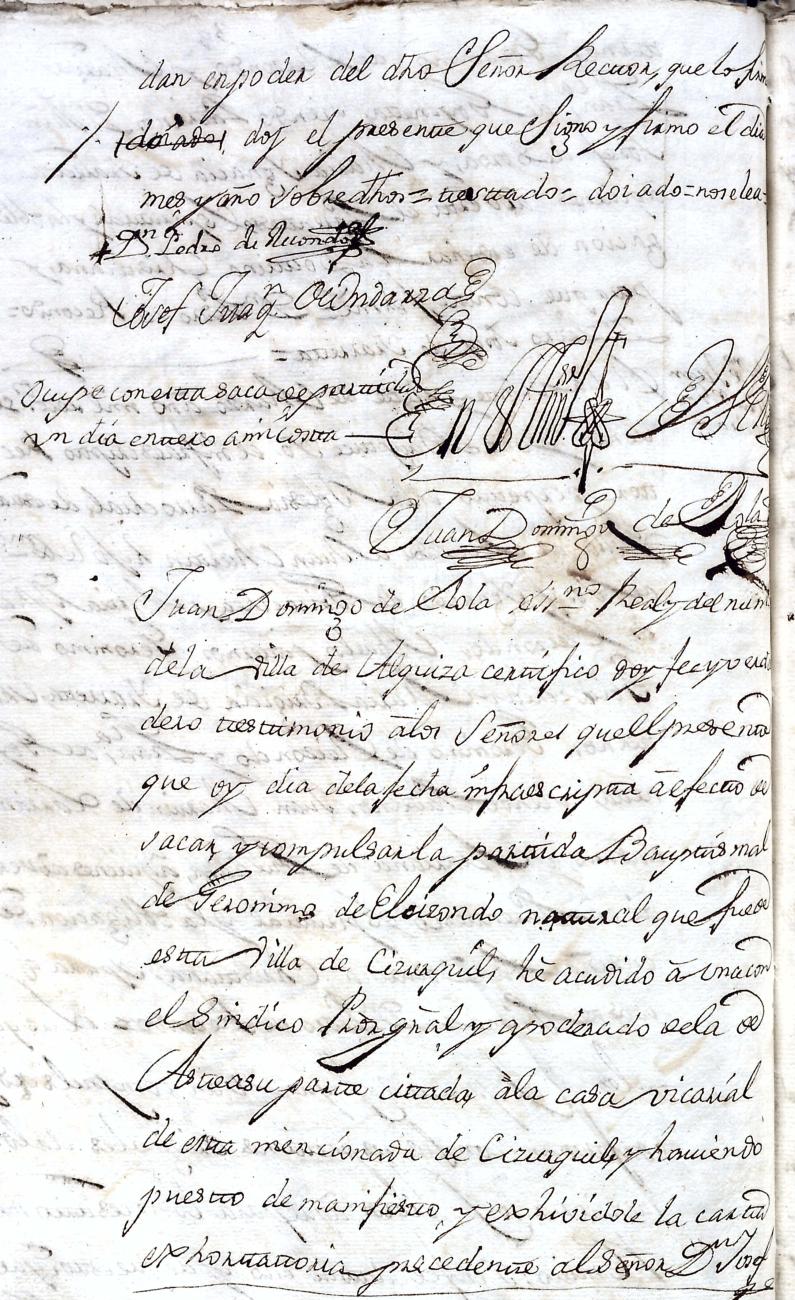 dan en poder del dho Señor Rector, que lo firm
doiado, doy el presente que Signo y firmo el dia
mes y año sobredhos = testado = doiado = nose lea =
Dn Pedro de Recondo
Josef Juaqn
Ocupe con esta saca de partida
un dia entero a mi Costa
En testimo de Verd
Juan Domingo de Elola
Juan Domingo de Elola essno Real y del num
dela Villa de Alquiza certifico doy fe y verda
dero testimonio a los Señores que el presente
que oy dia dela fecha infraescripta a efecto de
sacar, y compulsar la partida Bauptismal
de Geronimo de Elizondo natural que fue de
esta Villa de Cizurquil, he acudido a una con
el Sindico Prorgñal y apoderado dela de
Asteasu parte cittada, ala casa vicarial
de esta mencionada de Cizurquil, y haviendo
puesto de manifiesto, y exhividole la carta
exhortatoria precedente al Señor Dn Josef